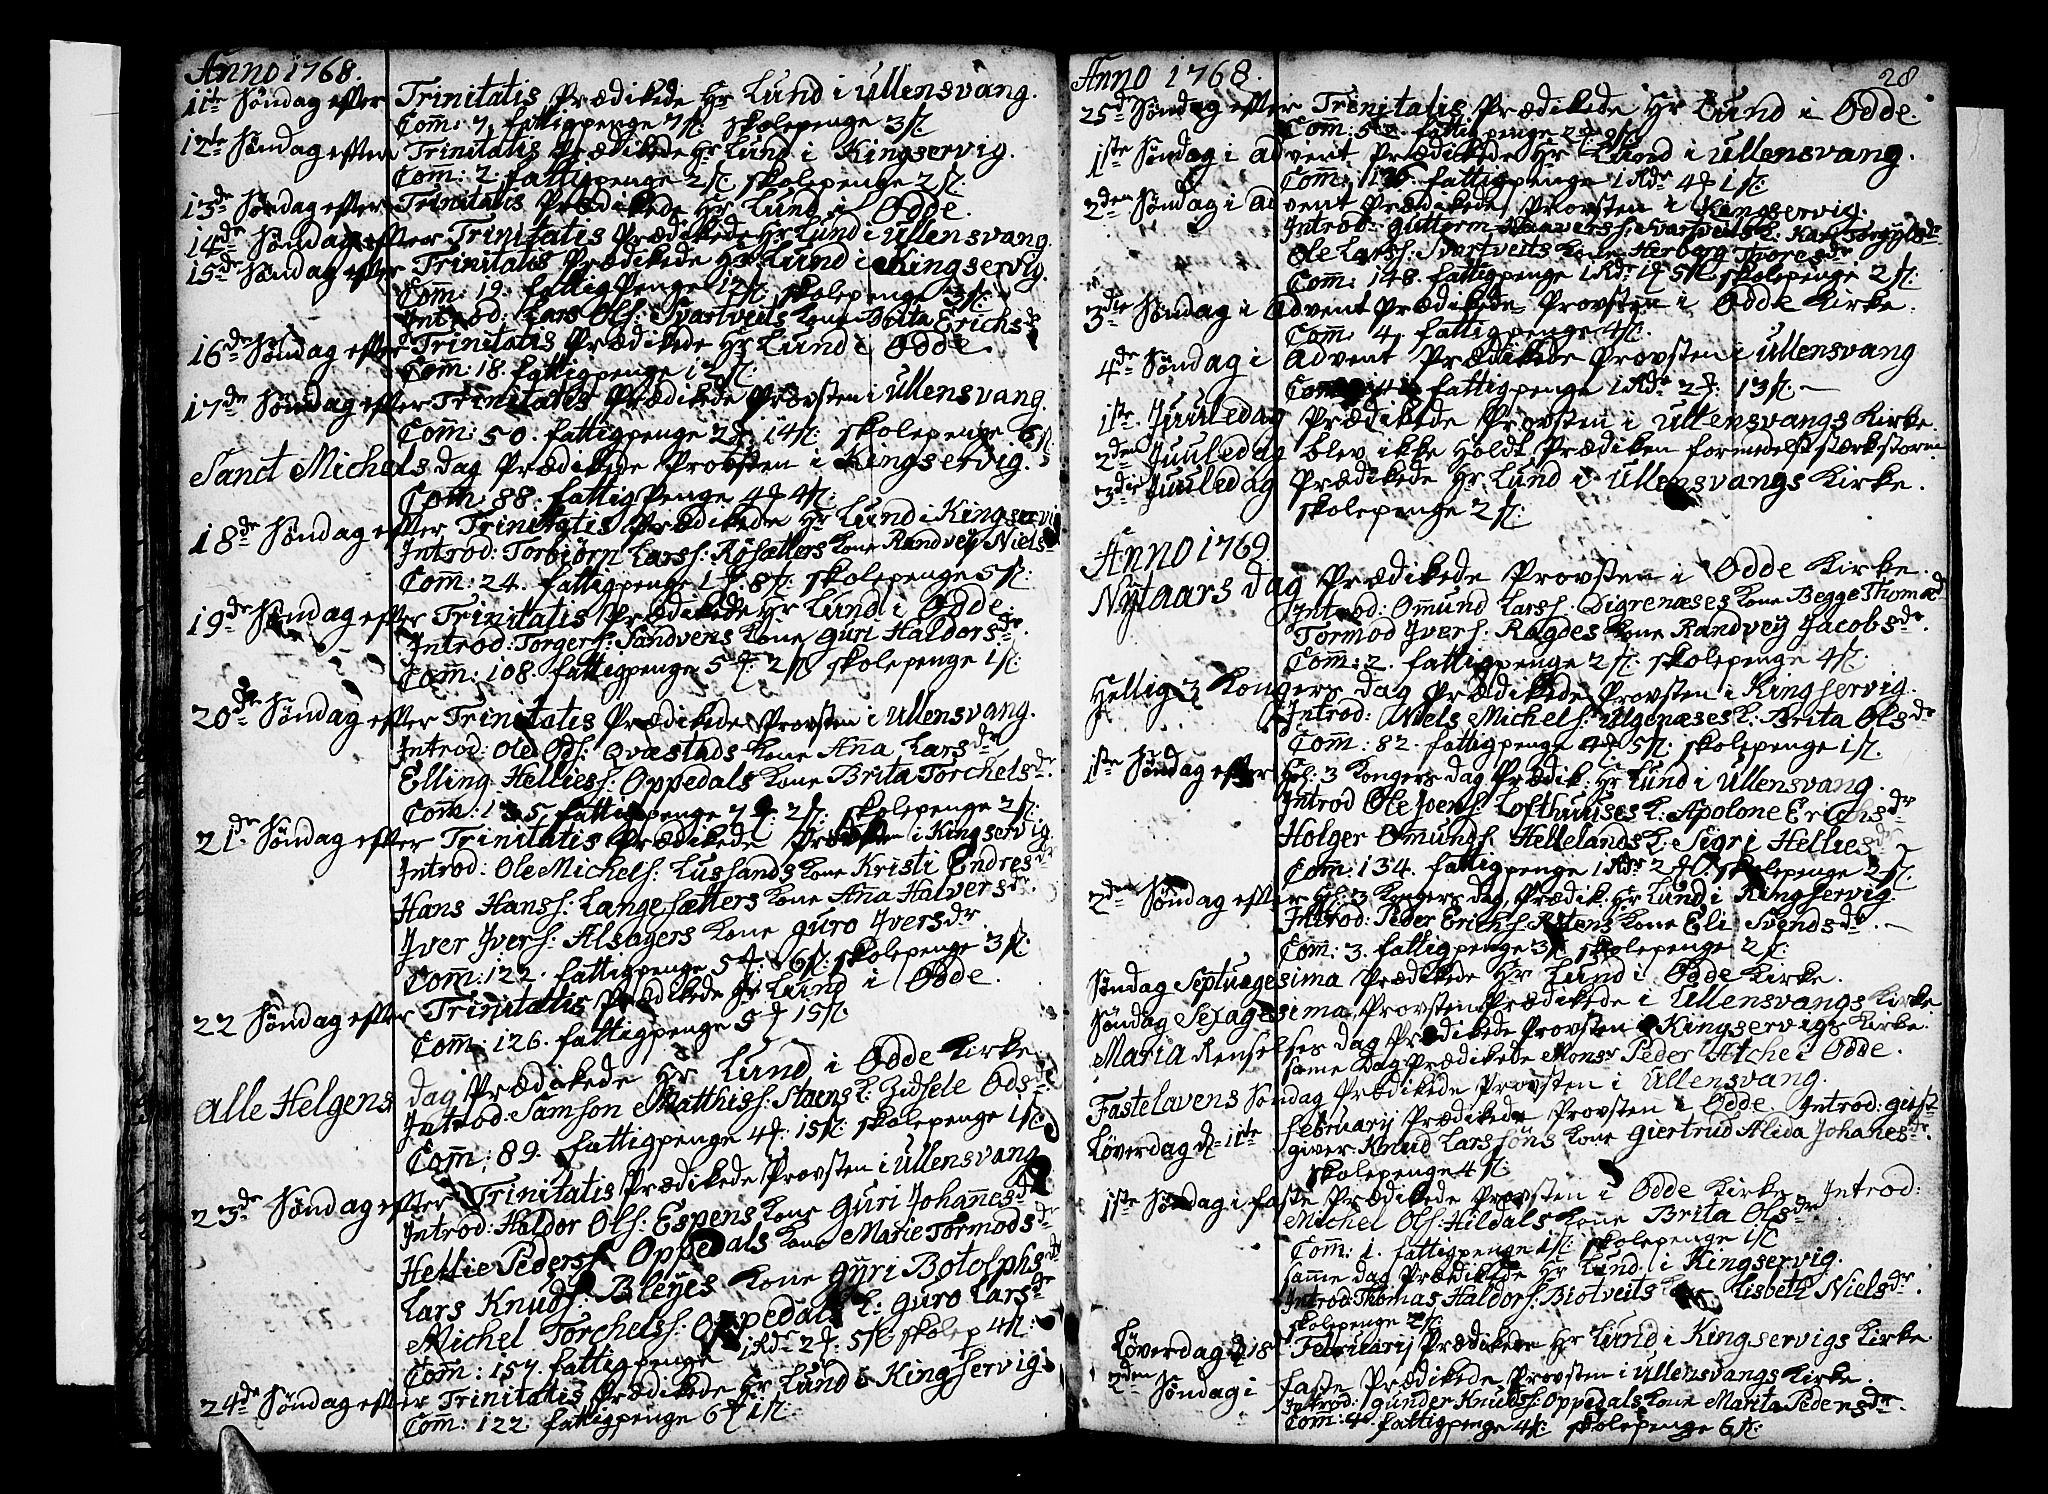 Anno 1768.
11te Søndag efter Trinitatis Prædikede Hr Lund i Ullensvang.
Com̄: 7. fattigpenge 7 ß: skolepenge 3 ß.
12te Søndag efter Trinitatis Prædikede Hr Lund i Kingservig.
Com: 2. fattigpenge 2 ß: skolepenge 2 ß:
13de Søndag efter Trinitatis Prædikede Hr Lund i Odde.
14de Søndag efter Trinitatis Prædikede Hr Lund i Ullensvang.
15de Søndag efter Trinitatis Prædikede Hr Lund i Kingservig.
Com̄: 19. fattigpenge 12 ß: skolepenge 3 ß:
Introd: Lars Ols: Svartveits kone Brita Erichsdr
16de Søndag efter Trinitatis Prædikede Hr Lund i Odde.
Com̄: 18. fattigpenge 12 ß:
17de Søndag efter Trinitatis Prædikede Provsten i Ullensvang.
Com̄: 50. fattigpenge 2 14 ß: skolepenge 6 ß:
Sanct Michels dag Prædikede Provsten i Kingservig.
Com̄: 88. fattigpenge 4 4 ß:
18de Søndag efter Trinitatis Prædikede Hr Lund i Kingservi
Introd: Torbjørn Larss: Røsætters kone Randvey Niels
Com̄: 24. fattigpenge 1 8 ß: skolepenge 5 ß:
19de Søndag efter Trinitatis Prædikede Hr Lund i Odde.
Introd: Torgers: Sandvens kone Guri Haldorsdr.
Com̄: 108. fattigpenge 5 2 ß skolepenge 1 ß:
20de Søndag efter Trinitatis Prædikede Provsten i Ullensvang.
Introd: Ole Ods: Qvæstads kone Anna Larsdr
Elling Hellies: Oppedals kone Brita Torchelsdr.
Com̄: 135 fattigpenge 7 2 ß: skolepenge 2 ß:
21de Søndag efter Trinitatis Prædikede Provsten i Kingservig
Introd: Ole Michels: Lussands kone Kristi Endresdr
Hans Hanss: Langesætters kone Ana Halversdr.
Jver Jvers: Alsagers kone Guro Jversdr
Com̄: 122. fattigpenge 5 6 ß: skolepenge 3 ß:
22 Søndag efter Trinitatis Prædikede Hr Lund i Odde.
Com̄: 126. fattigpenge 5 15 ß:
Alle Helgens dag Prædikede Hr Lund i Odde Kirke
Introd: Samson Matthiss: Staens k: Zidsele Odsdr
Com̄: 89. fattigpenge 4 15 ß: skolepenge 1 ß:
23de Søndag efter Trinitatis Prædikede Provsten i Ullensvang
Introd: Haldor Ols: Espens kone Guri Johannesdr
Hellie Peders: Oppedals kone Marie Tormodsdr
Lars Knuds: Bleyes kone Gyri Botolphsdr
Michel Torchelss: Oppedals k: Guro Larsdr
Com̄: 157. fattigpenge 1 Rdr 2 5 ß: skolep 4 ß:
24de Søndag efter Trinitatis Prædikede Hr Lund i Kingservig:
Com̄: 122. fattigpenge 6 1 ß:
Anno 1768.
28
25de Søndag efter Trinitatis Prædikede Hr Lund i Odde.
Com̄: fattigpenge
1ste Søndag i Advent Prædikede Hr Lund i Ullensvang.
Com̄: fattigpenge 1 Rdr 4 1 ß:
2den Søndag i Advent Prædikede Provsten i Kingservig.
Introd: Guttorm Svartveits k: Kari
Ole Larss: Svartveits kone Herborg Thoresdr
Com̄: 148. fattigpenge 1 Rdr 1 5 ß: skolepenge 2 ß:
3die Søndag i Advent Prædikede Provsten i Odde Kirke.
Com̄: 4. fattigpenge 4 ß:
4de Søndag i Advent Prædikede Provsten i Ullensvang
Com̄: fattigpenge 1 Rdr 2 13 ß.
1ste Juuledag Prædikede Provsten i Ullensvangs Kirke.
2den Juuledag blev ikke holdt Prædiken formedelst stærk storm
3die Juuledag Prædikede Hr Lund i Ullensvangs Kirke.
skolepenge 2 ß:
Anno 1769
Nytaars dag Prædikede Provsten i Odde Kirke.
Introd: Omund Larss: Digrenæses kone Begge Thomædr
Tormod Jvers: Ragdes kone Randvey Jacobsdr.
Com̄: 2. fattigpenge 2 ß: skolepenge 4 ß.
Hellig 3 Kongers dag Prædikede Provsten i Kingservig.
Introd: Niels Michels: Ulgenæses k: Brita Olsdr
Com̄: 82. fattigpenge 4 5 ß: skolepenge 1 ß.
1ste Søndag efter Hel: 3 Kongers dag Prædik: Hr Lund i Ullensvang.
Introd Ole Joens: Lofthuuses k: Apolone Erichsdr
Holger Omunds: Hellelands k: Sigri Helliesdr
Com̄: 134. fattigpenge 1 Rdr 2 skolepenge 2 ß.
2den Søndag efter Hel: 3 Kongers dag, Prædik: Hr Lund i Kingservig.
Introd: Peder Erichs: kone Eli Svendsdr.
Com̄: 3. fattigpenge 3 ß skolepenge 2 ß:
Søndag Septuagesima Prædikede Hr Lund i Odde Kirke.
Søndag Sexagesima Provsten Prædikede i Ullensvangs Kirke
Maria Renselses dag Prædikede Provsten i Kingservigs Kirke.
same Dag Prædikede Monsr Peder Atche i Odde.
Fastelavens Søndag Prædikede Provsten i Ullensvang.
Løverdag d: 11te Februarij Prædikede Provsten i Odde Introd: Giest
giver Knud Larssøns kone Giertrud Alida Johanesdr.
skolepenge 4 ß:
1ste Søndag i Faste Prædikede Provsten i Odde Kirke Introd:
Michel Ols: Hildals kone Brita Olsdr
Com̄: 1. fattigpenge 1 ß: skolepenge 1 ß
samme dag Prædikede Hr Lund i Kingservig.
Introd: Thomas Haldors: Biotveits Lisbeth Nielsdr.
skolepenge 2 ß:
Løverdag d 18 Februarij Prædikede Hr Lund i Kingservigs Kirke
2den Søndag i Faste Prædikede Provsten i Ullensvangs Kirke.
Introd: Gunder Knuds: Oppedals kone Marita Pedersdr.
Com̄: 4 fattigpenge 4 ß: skolepenge 6 ß: